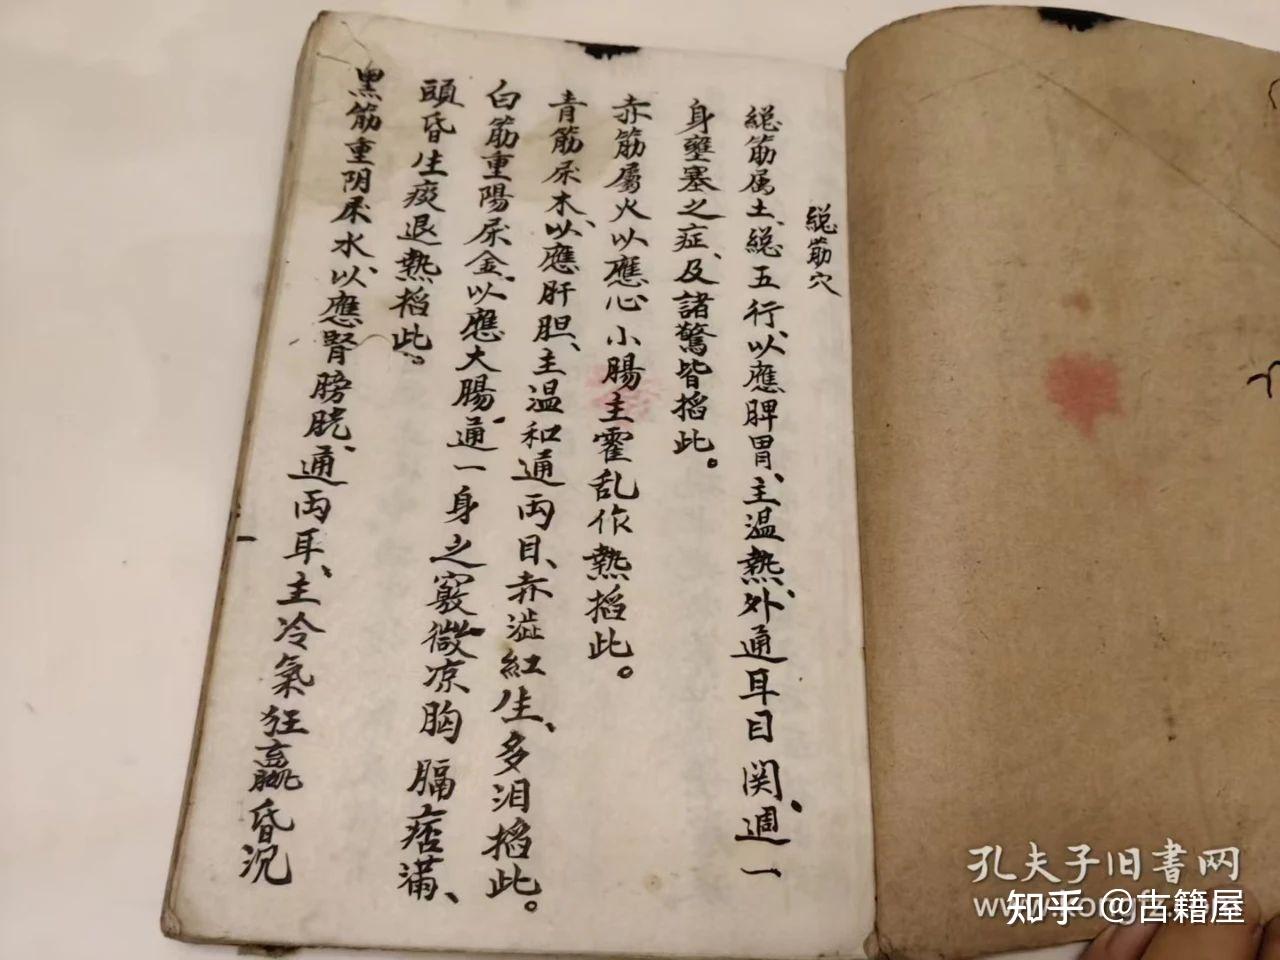 総筋穴
総筋属土、総五行、以應脾胃、主温熱、外通耳目関、週一
身壅塞之症、及諸驚皆掐此。
赤筋屬火以應心小腸主霍乱作熱掐此。
青筋尿木、以應肝胆、主温和通両目、赤澁紅生、多泪掐此。
白筋重陽尿金、以應大腸、通一身之竅微凉胸膈痞满、
頭昏生痰退熱掐此。
黑筋重阴尿水、以應腎膀胱、通両耳、主冷氣狂羸昏沉
孔夫子旧书网
知乎 @古籍屋